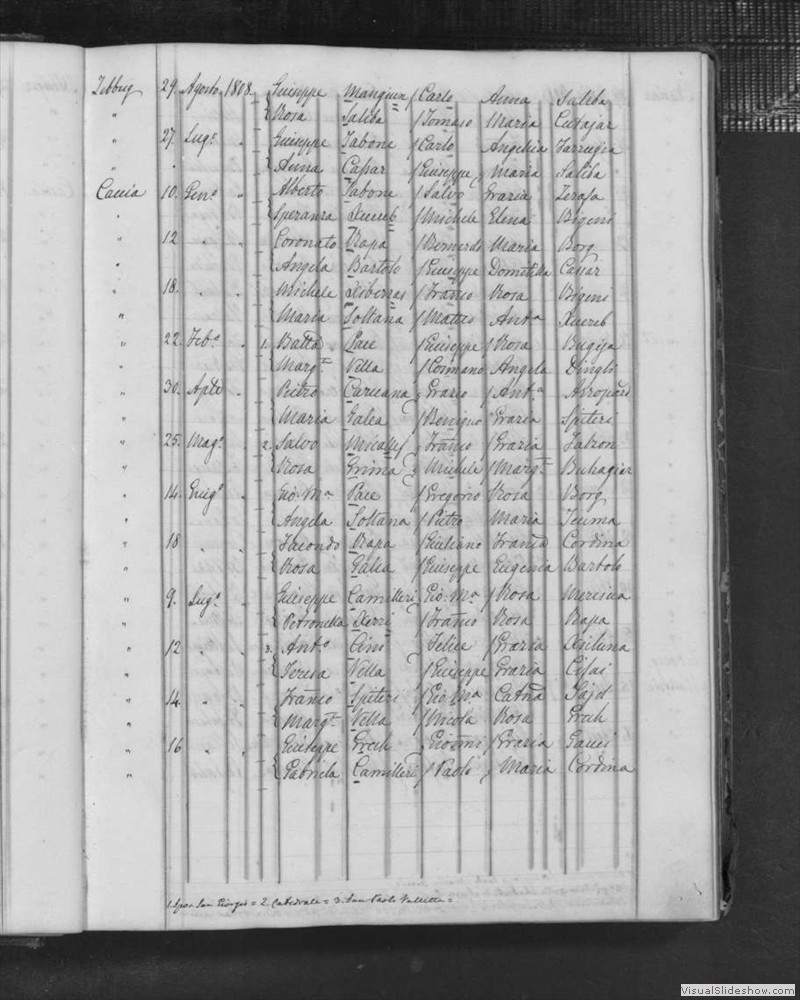 Zebbug 29. Agosto 1808. Giuseppe Mangion / Carlo Anna Saliba
" Rosa Saliba / Tomaso Maria Cutajar
" 27. Lug.o " Giuseppe Tabone / Carlo Angelica Farrugia
" Anna Cassar / Giuseppe, Maria Saliba
Caccia 10. Gen.o " Alberto Tabone / Salvo Grazia Zerafa
" Speranza Xuereb / Michele Elena Bigeni
" 12 " " Coronato Rapa / Bernardo Maria Borg
" Angela Bartolo / Giuseppe Domitilla Cassar
" 18. " " Michele Xiberras / Franco Rosa Bigeni
" Maria Soltana / Matteo Ant.a Xuereb
" 22. Feb.o " 1. Batta Pace / Giuseppe / Rosa Bugeja
" Marg.ta Vella / Cosmano Angela Dingli
" 30. Aple " Pietro Caruana, Grazio / Ant.a
" Maria Galea / Benigno Grazia Spiteri
" 25. Mag.o " 2. Salvo Micallef / Franco / Grazia
" Rosa Grima, Michele / Marg.ta Buhagiar
" 14. Giug.o " Gio: M.a Pace / Gregorio Rosa Borg
" Angela Soltana / Pietro Maria Teuma
" 18 " " Facondo Rapa / Giuliano Franca Cordina
" Rosa Galea / Giuseppe Eugenia Bartolo
" 9. Lug.o " Giuseppe Camilleri, Gio: M.a / Rosa
" Petronella Xerri / Franco Rosa Rapa
" 12 " " 3. Ant.o Cini Felice / Grazia Xiluna
" Teresa Vella / Giuseppe Grazia
" 14. " " Franco Spiteri / Gio: M.a Catna Sajd
" Marg.ta Vella / Nicola Rosa Grech
" 16 " " Giuseppe Grech Gioanni / Grazia Gauci
" Gabriela Camilleri / Paolo, Maria Cordina
1. Spos. San Giorgio = 2. Catedrale = 3. San Paolo Valletta =
VisualSlideshow.com